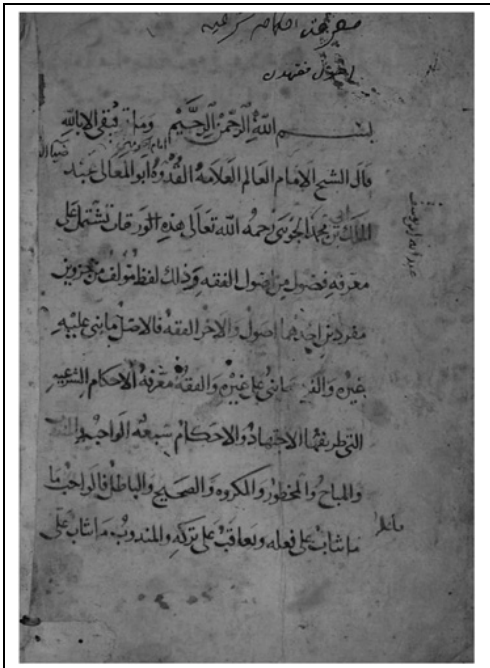 معرفة احكام شرعيه
بسم الله الرحمن الرحيم وما توفيقي الا بالله
قال الشيخ الامام العالم العلامة القدوة ابو المعالي عبد
الملك بن محمد الجويني رحمه الله تعالى هذه الورقات تشتمل على
معرفة فصول من اصول الفقه وذلك لفظ مؤلف من جزوين
مفردين احدهما اصول والاخر الفقه فالاصل ما بني عليه
غيره والفرع ما بني على غيره والفقه معرفة الاحكام الشرعيه
التي طريقها الاجتهاد والاحكام سبعة الواجب والمندوب
والمباح والمحظور والمكروه والصحيح والباطل فالواجب ما
ما يثاب على فعله ويعاقب على تركه والمندوب ما يثاب على